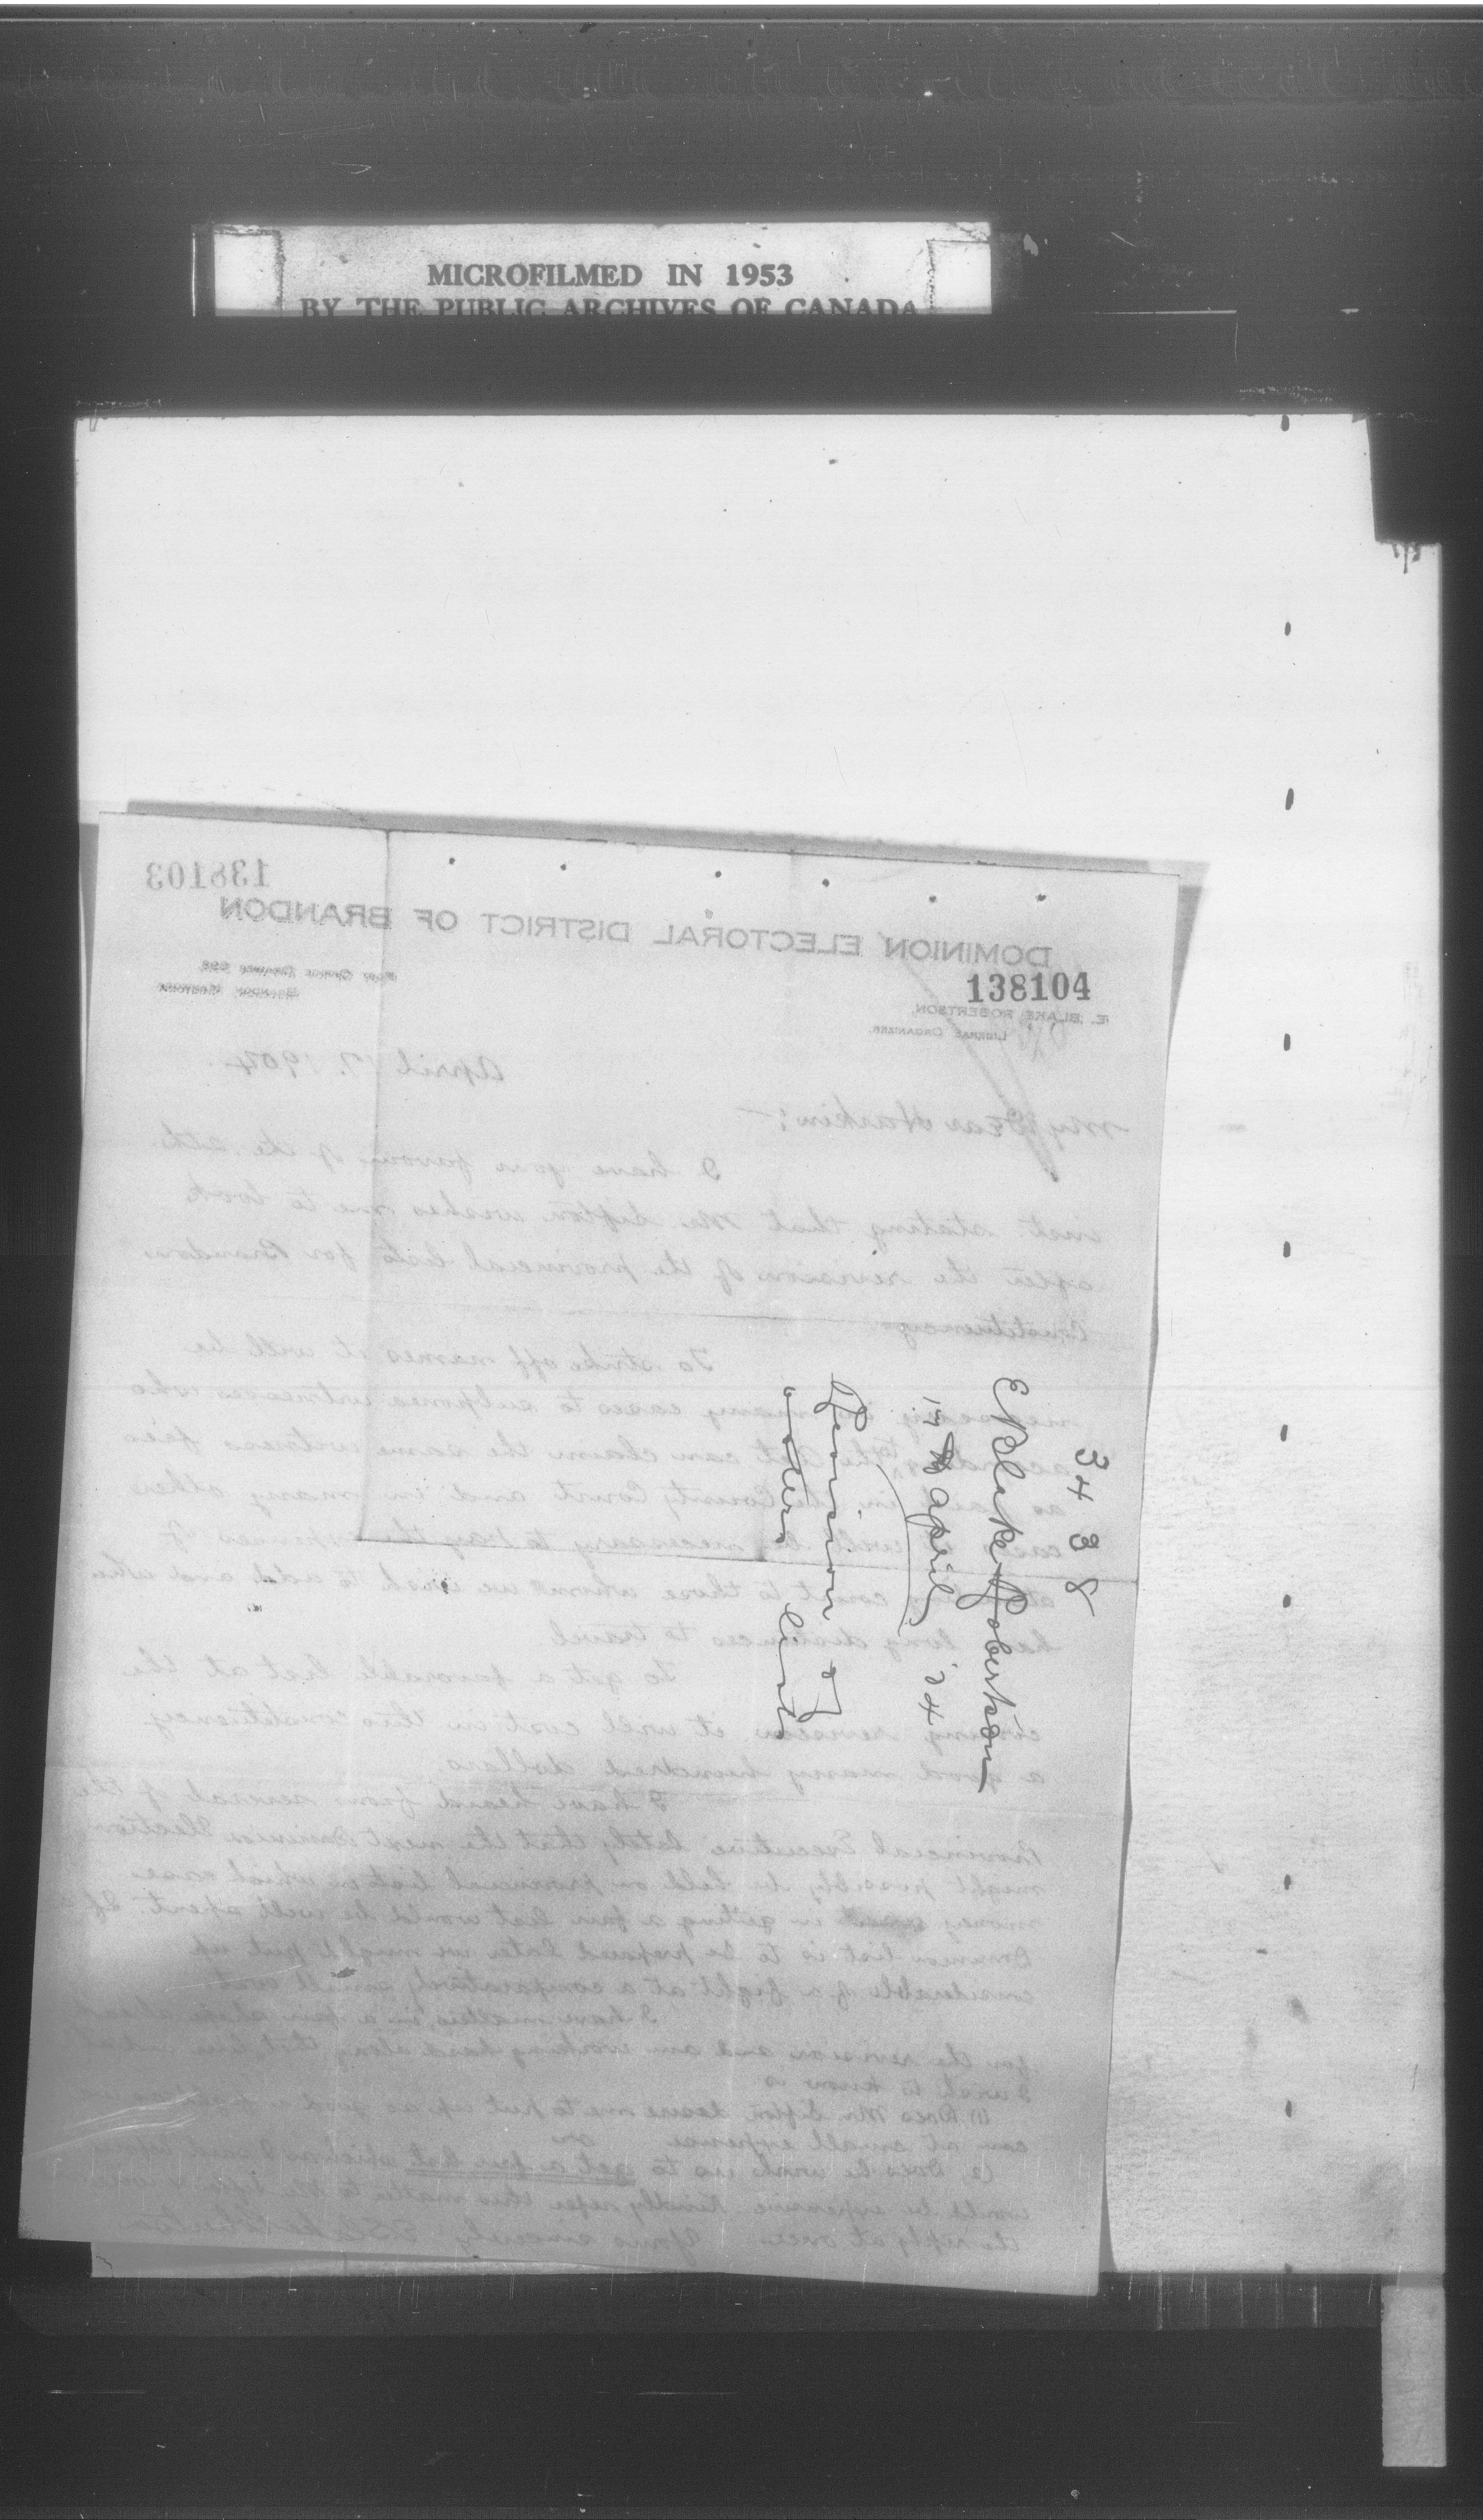 MICROFILMED IN 1953
BY THE PUBLIC ARCHIVES OF CANADA
138103
DOMINION ELECTORAL DISTRICT OF BRANDON
138104
E. BLAKE ROBERTSON,
LIBERAL ORGANIZER.
POST OFFICE DRAWER
BRANDON MANITOBA
April 17, 1904
My Dear Harkin:—
I have your favour of the
inst. stating that Mr. Sifton wishes me to look
after the revision of the provincial lists for Brandon
Constituency.
To strike off names it will be
necessary in many cases to subpoena witnesses who
according to the Act can claim the same witness fees
as paid in the County Court and in many other
cases it will be necessary to pay the expenses of
court to those whom we wish to add and who
have long distances to travel
To get a favorable list at the
coming revision it will cost in this constituency
a good many hundred dollars.
I have heard from several of the
Provincial Executive lately that the next Dominion Election
might possibly be held on provincial list in which case
money spent in getting a fair list would be well spent. If a
Dominion list is to be prepared later we might put up
considerable of a fight at a comparatively small cost
I have matters in a fair shape
for the revision and am working hard along that line
I wish to know is
(1) Does Mr. Sifton desire me to put up as good a fight as we
can at small expense or
(2) Does he wish us to get a fair list which as I said before
would be expensive. Kindly refer this matter to Mr. Sifton
the reply at once. Yours sincerely E Blake Robertson
3438
E Blake Robertson
17 April '04
Revision of
voters lists